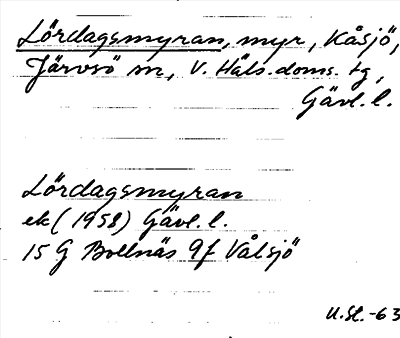 Lördagsmyran, myr, Kåsjö,
Järvsö sn, V. Häls. doms. tg,
Gävl. l.
Lördagsmyran
ek (1958) Gävl. l.
15 G Bollnäs 9f Vålsjö
U.St. -63